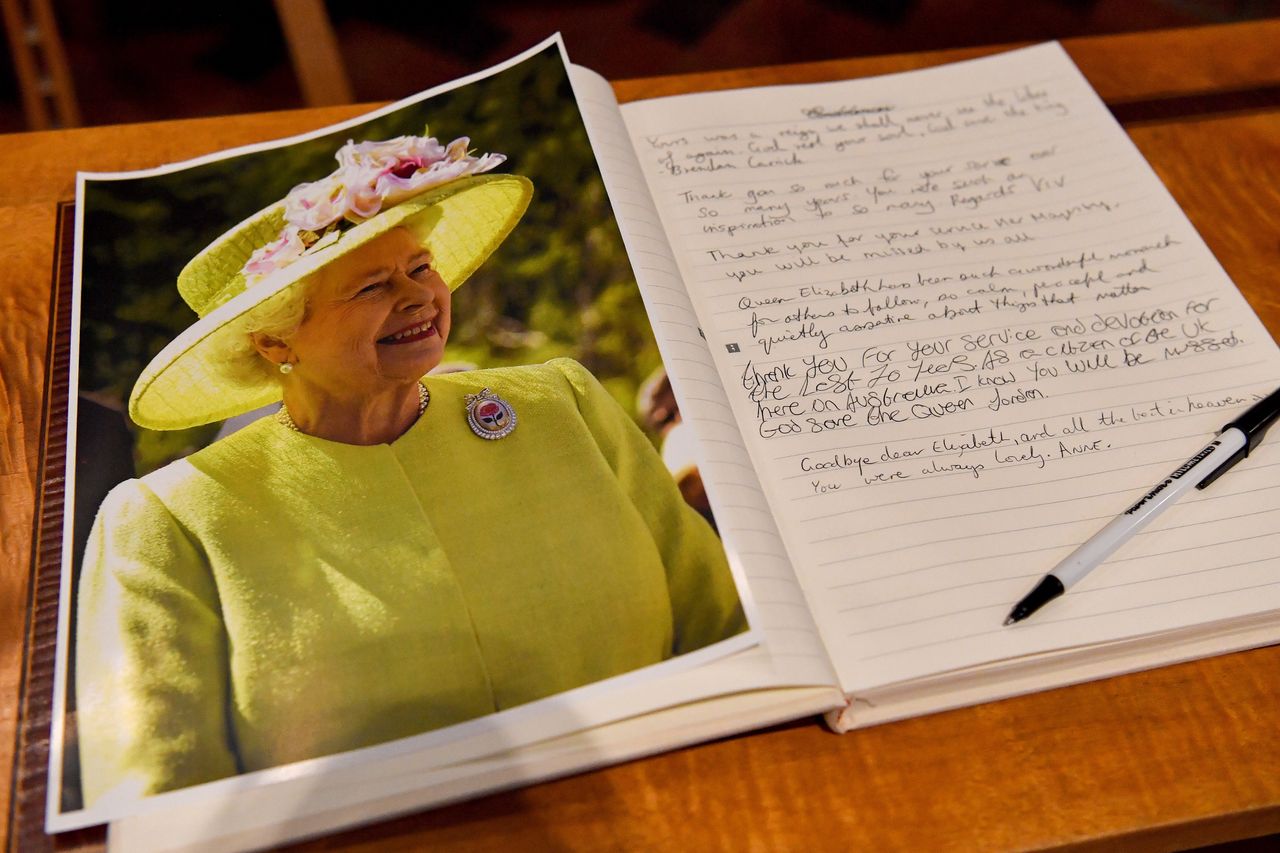 Condolences
Yours was a reign we shall never see the likes
of again. God rest your soul, God save the King
Brendan Carrick
Thank you so much for your service over
so many years. You were such an
inspiration to so many Regards VIV
Thank you for your service Her Majesty.
you will be missed by us all
Queen Elizabeth has been such a wonderful monarch
for others to follow, so calm, peaceful and
quietly assertive about things that matter
thank You For Your Service and devotion for
the Last 70 Years. As a citizen of the UK
here on Australia I know You Will be missed.
God Save the Queen
Goodbye dear Elizabeth, and all the best in heaven
You were always lovely. ANNE.